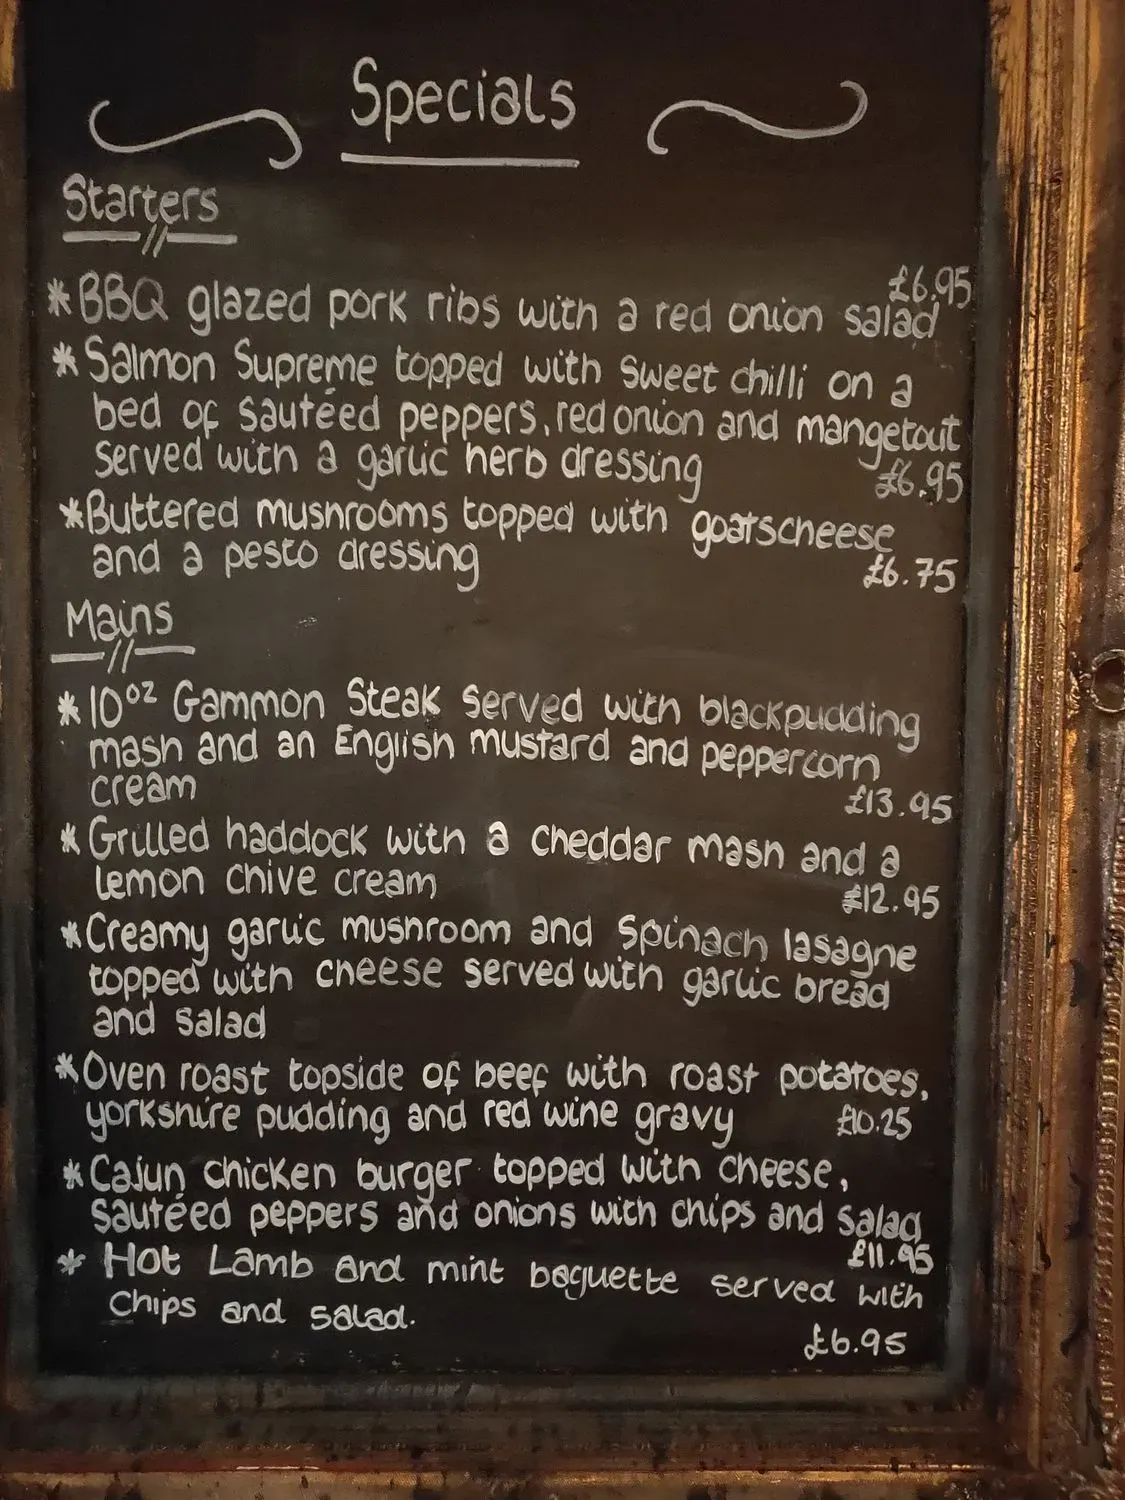 Specials
Starters
* BBQ glazed pork ribs with a red onion salad £6.95
* Salmon Supreme topped with sweet chilli on a
bed of sautéed peppers, red onion and mangetout
served with a garlic herb dressing £6.95
* Buttered mushrooms topped with goatscheese
and a pesto dressing £6.75
Mains
* 10oz Gammon Steak served with blackpudding
mash and an English mustard and peppercorn
cream £13.95
* Grilled haddock with a cheddar mash and a
lemon chive cream £12.95
* Creamy garlic mushroom and spinach lasagne
topped with cheese served with garlic bread
and salad
* Oven roast topside of beef with roast potatoes,
yorkshire pudding and red wine gravy £10.25
* Cajun chicken burger topped with cheese,
sautéed peppers and onions with chips and salad
£11.95
* Hot Lamb and mint baguette served with
Chips and salad.
£6.95